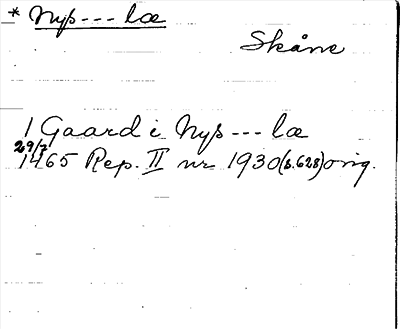 * Nyb--- læ
Skåne
1 Gaard i Nyb --- læ
29/7
1465 Rep. II nr 1930 (s. 628) orig.